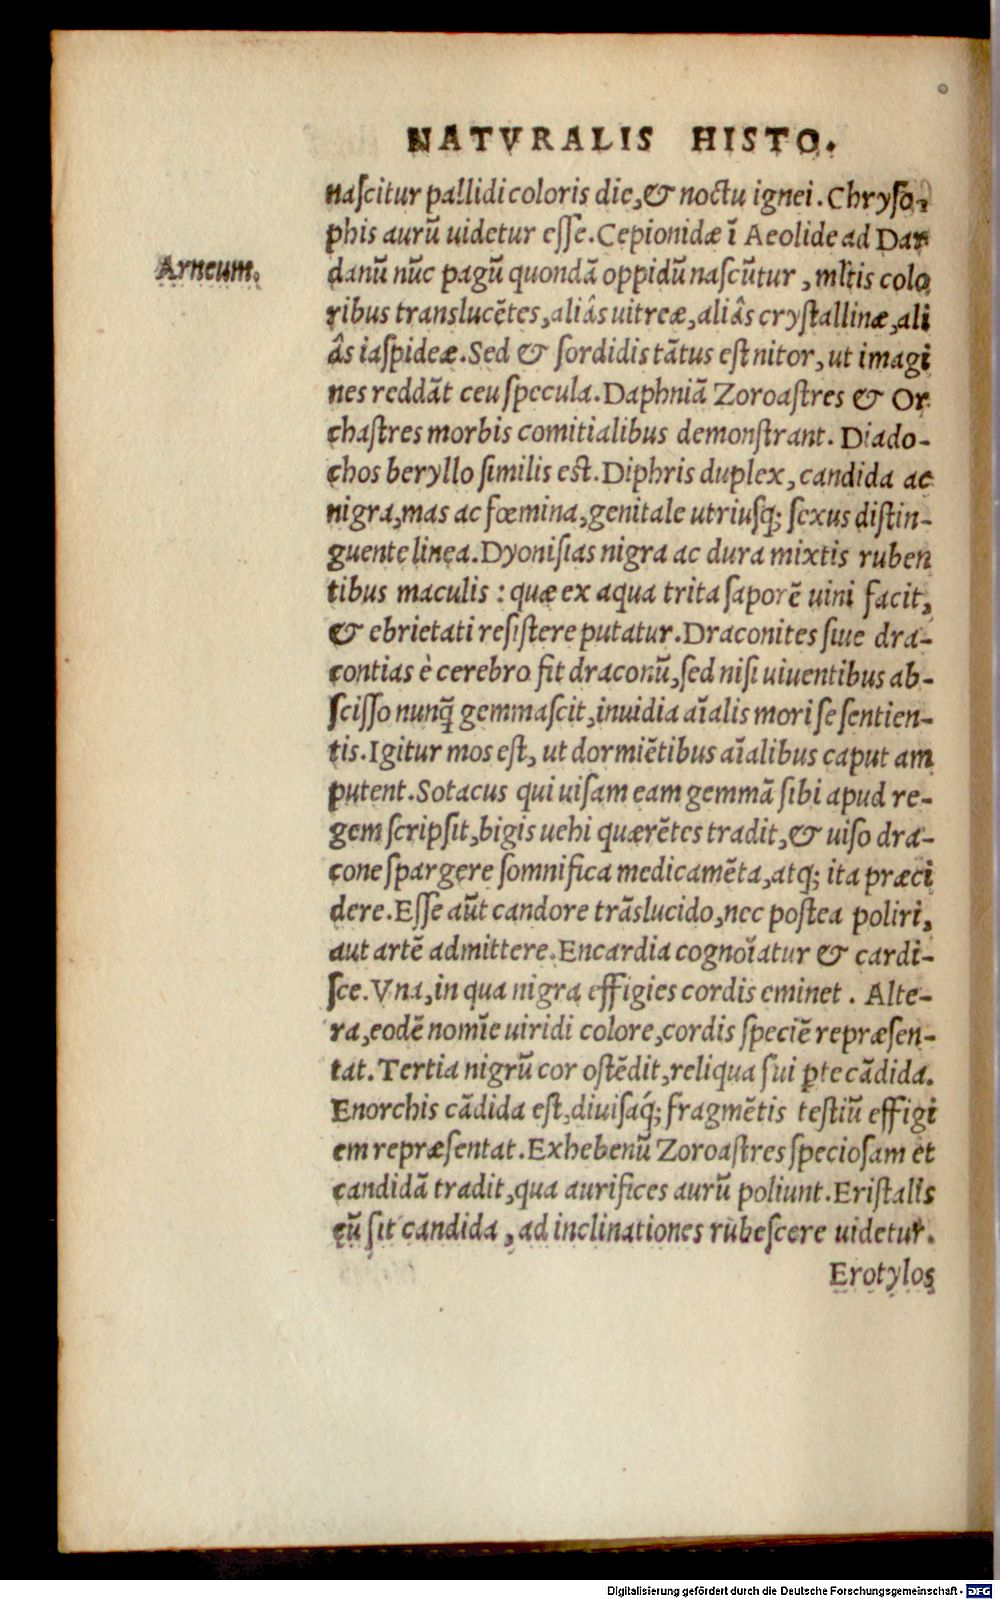 NATVRALIS HISTO.
naſcitur pallidi coloris die, & noctu ignei. Chryſo-
phis aurū uidetur eſſe. Cepionidæ ī Aeolide ad Dar
Arneum.
danū nūc pagū quondā oppidū naſcūtur, mltis colo
ribus translucētes, aliâs uitreæ, aliâs cryſtallinæ, ali
âs iaſpideæ. Sed & ſordidis tātus eſt nitor, ut imagi
nes reddāt ceu ſpecula. Daphniā Zoroaſtres & Or
chaſtres morbis comitialibus demonſtrant. Diado-
chos beryllo ſimilis eſt. Diphris duplex, candida ac
nigra, mas ac fœmina, genitale utriuſq; ſexus diſtin-
guente linea. Dyoniſias nigra ac dura mixtis ruben
tibus maculis : quæ ex aqua trita ſaporē uini facit,
& ebrietati reſiſtere putatur. Draconites ſiue dra-
contias è cerebro fit draconū, ſed niſi uiuentibus ab-
ſciſſo nunq̄ gemmaſcit, inuidia aīalis mori ſe ſentien-
tis. Igitur mos eſt, ut dormiētibus aīalibus caput am
putent. Sotacus qui uiſam eam gemmā ſibi apud re-
gem ſcripſit, bigis uehi quærētes tradit, & uiſo dra-
cone ſpargere ſomnifica medicamēta, atq; ita præci
dere. Eſſe aūt candore trāslucido, nec poſtea poliri,
aut artē admittere. Encardia cognoīatur & cardi-
ſce. Vna, in qua nigra effigies cordis eminet. Alte-
ra, eodē nomīe uiridi colore, cordis ſpeciē repræſen-
tat. Tertia nigrū cor oſtēdit, reliqua ſui ꝑte cādida.
Enorchis cādida eſt, diuiſaq́; fragmētis teſtiū effigi
em repræſentat. Exhebenū Zoroaſtres ſpecioſam et
candidā tradit, qua aurifices aurū poliunt. Eriſtalis
cū ſit candida, ad inclinationes rubeſcere uidetur.
Erotylos
Digitalisierung gefördert durch die Deutsche Forschungsgemeinschaft - DFG